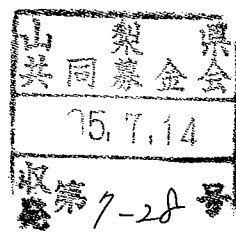 山梨県
共同募金会
15.7.14
収受第7-28号